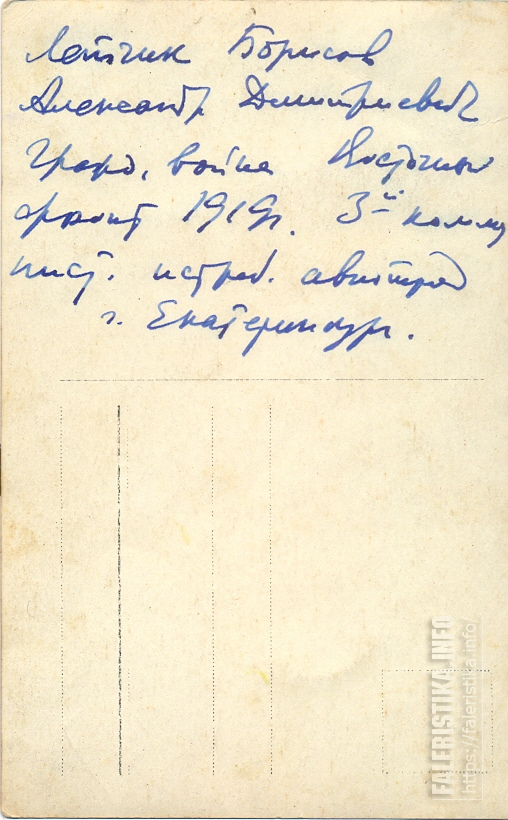 Летчик Борисов
Александр Дмитриевич
Гражд. война Восточный
фронт 1919г. 3-й комму
нист. истреб. авиотряд
г. Екатеринбург.
FALERISTIKA.INFO
https://faleristika.info/